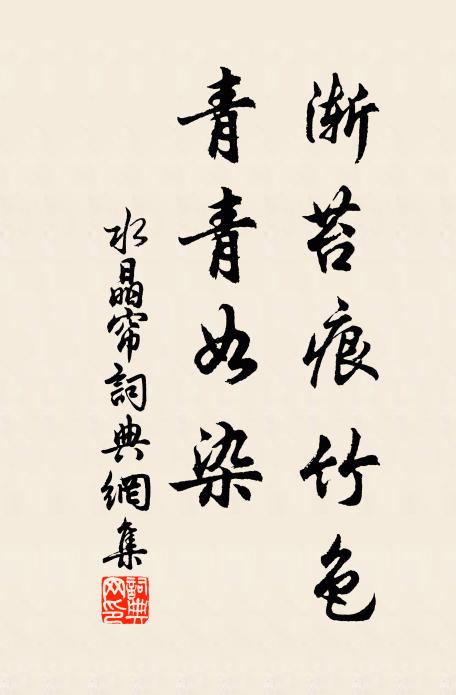 渐苔痕竹色
青青如染
水晶帘詞典網集
詞典网印